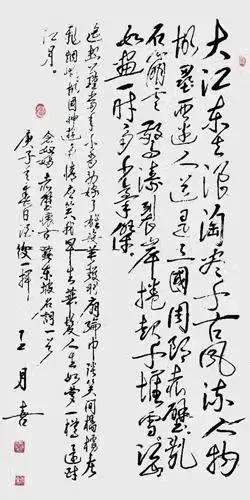 大江东去浪淘尽千古风流人物
故垒西边人道是三国周郎赤壁乱
石崩云惊涛裂岸捲起千堆雪江山
如画一时多少豪傑
遥想公瑾当年小乔初嫁了雄姿英发羽扇纶巾谈笑间樯橹灰
飞烟灭故国神游多情应笑我早生华发人生如梦一樽还酹
江月
念奴娇赤壁怀古苏东坡名词一首
庚子之春日 一挥
王月喜